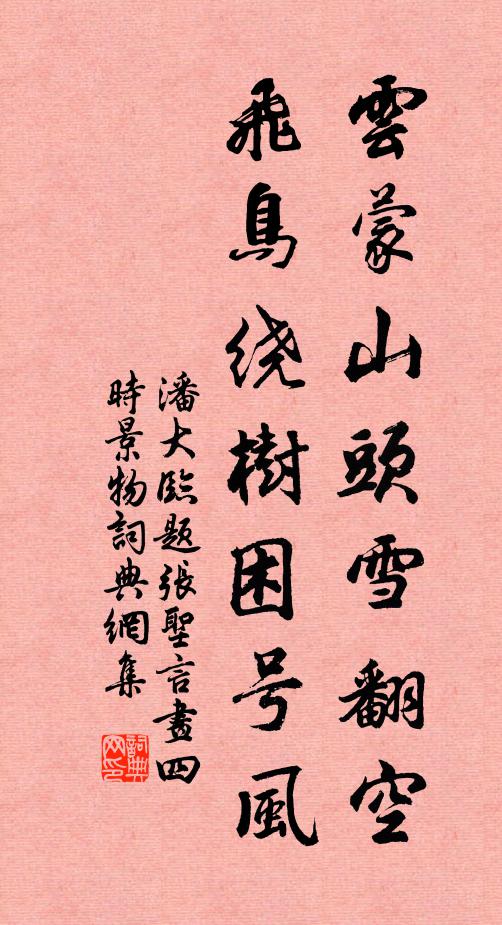 雲蒙山頭雪翻空
飛鳥绕樹困号風
潘大臨題張聖言畫四
時景物詞典網集
詞典
网印